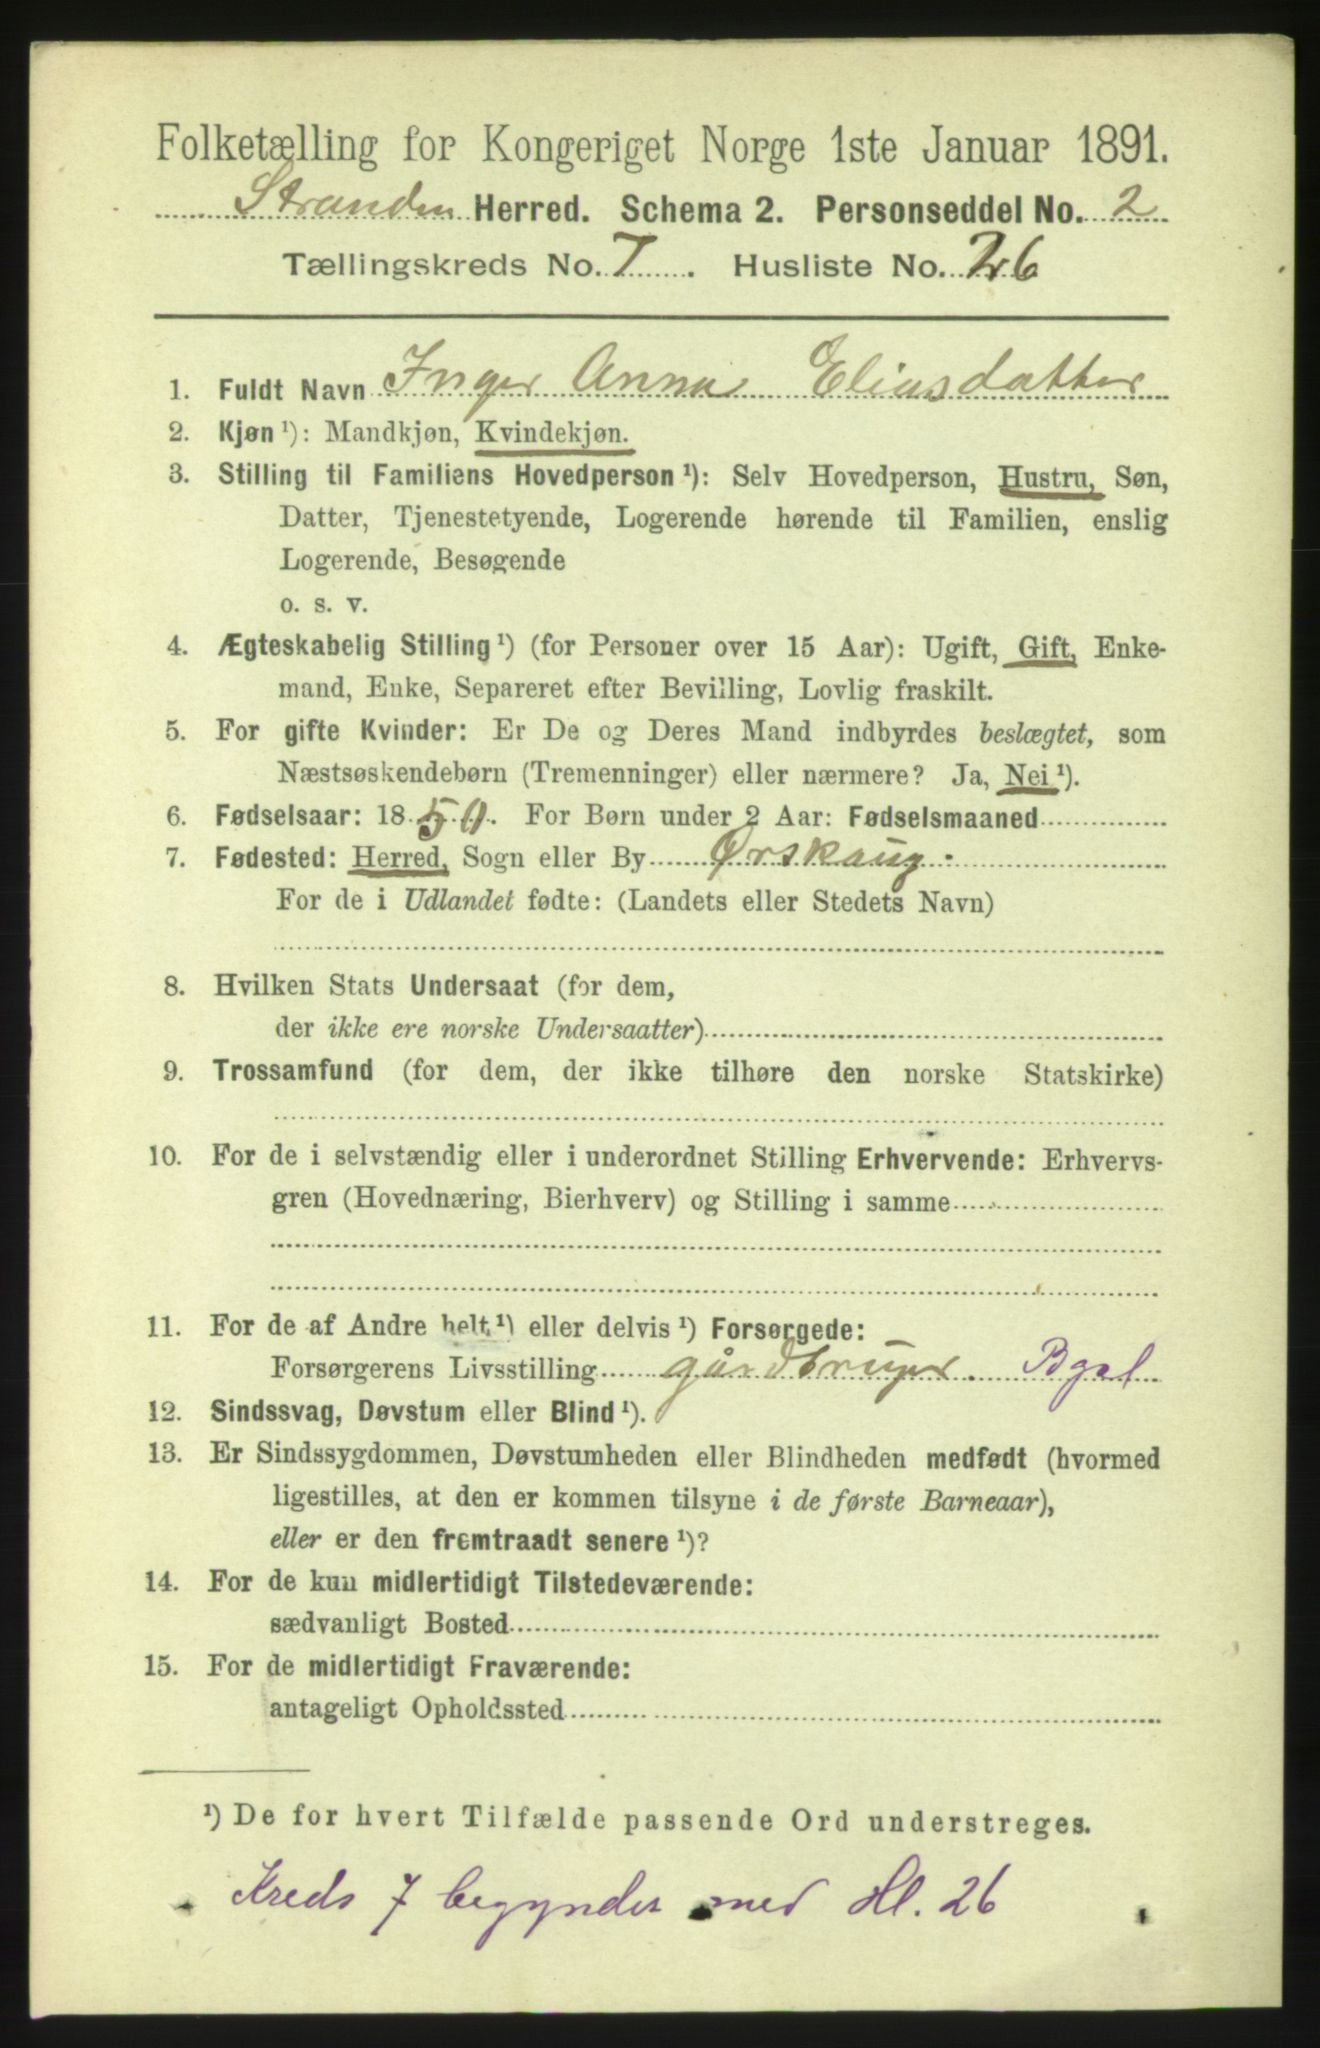 Folketælling for Kongeriget Norge 1ste Januar 1891.
Stranden Herred. Schema 2. Personseddel No. 2
Tællingskreds No. 7. Husliste No. 26
1. Fuldt Navn Inger Anna Eliasdatter
2. Kjøn ¹): Mandkjøn, Kvindekjøn.
3. Stilling til Familiens Hovedperson ¹): Selv Hovedperson, Hustru, Søn,
Datter, Tjenestetyende, Logerende hørende til Familien, enslig
Logerende, Besøgende
o. s. v.
4. Ægteskabelig Stilling ¹) (for Personer over 15 Aar): Ugift, Gift, Enke-
mand, Enke, Separeret efter Bevilling, Lovlig fraskilt.
5. For gifte Kvinder: Er De og Deres Mand indbyrdes beslægtet, som
Næstsøskendebørn (Tremenninger) eller nærmere? Ja, Nei ¹).
6. Fødselsaar: 1850. For Børn under 2 Aar: Fødselsmaaned
7. Fødested: Herred, Sogn eller By Ørskaug.
For de i Udlandet fødte: (Landets eller Stedets Navn)
8. Hvilken Stats Undersaat (for dem,
der ikke ere norske Undersaatter)
9. Trossamfund (for dem, der ikke tilhøre den norske Statskirke)
10. For de i selvstændig eller i underordnet Stilling Erhvervende: Erhvervs-
gren (Hovednæring, Bierhverv) og Stilling i samme
11. For de af Andre helt ¹) eller delvis ¹) Forsørgede:
Forsørgerens Livsstilling gårdbruger. Bgsl
12. Sindssvag, Døvstum eller Blind ¹).
13. Er Sindssygdommen, Døvstumheden eller Blindheden medfødt (hvormed
ligestilles, at den er kommen tilsyne i de første Barneaar),
eller er den fremtraadt senere ¹)?
14. For de kun midlertidigt Tilstedeværende:
sædvanligt Bosted
15. For de midlertidigt Fraværende:
antageligt Opholdssted
¹) De for hvert Tilfælde passende Ord understreges.
Kreds 7 begynder med Hl. 26